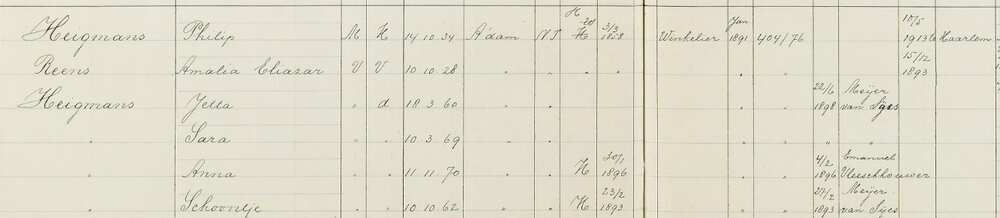 Heigmans Philip M H 14 10 34 A'dam NI H 20 H 3/3 1858 Winkelier Jan 1891 404/76 10/5 1913 6 Haarlem
Reens Amalia Eliazar V V 10 10 28 " " " " 15/12 1893
Heigmans Jetta " d 18 3 60 " " " " 22/6 1898 Meijer van Sijes
" Sara " " 10 3 69 " " " " " "
" Anna " " 11 11 70 " " H 30/1 1896 " " 4/2 1896 Emanuel Vleeschhouwer
" Schoontje " " 10 10 62 " " H 23/2 1893 " " 27/2 1893 Meijer van Sijes